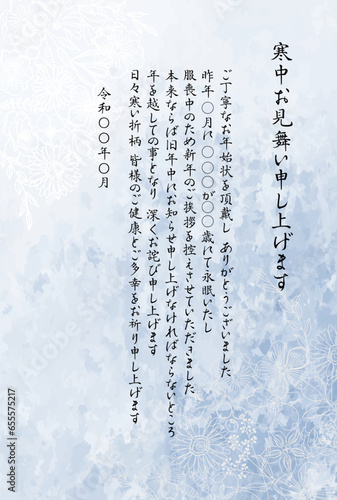 寒中お見舞い申し上げます
ご丁寧なお年始状を頂戴し ありがとうございました
昨年 〇月に 〇〇〇が〇〇歳にて永眠いたし
服喪中のため新年のご挨拶を控えさせていただきました
本来ならば旧年中にお知らせ申し上げなければならないところ
年を越しての事となり 深くお詫び申し上げます
日々寒い折柄 皆様のご健康とご多幸をお祈り申し上げます
令和〇〇年〇月
Adobe Stock | #655575217